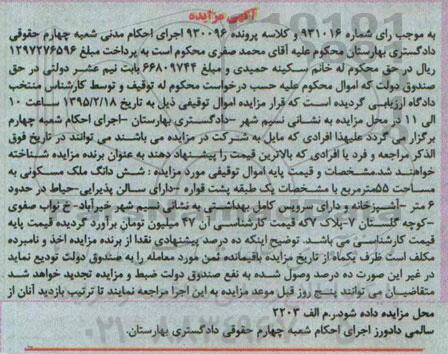 آگهی مزایده
به موجب رای شماره ۹۳۱۰۱۶ و کلاسه پرونده ۹۳۰۰۹۶ اجرای احکام مدنی شعبه چهارم حقوقی
دادگستری بهارستان محکوم علیه آقای محمد صفری محکوم است به پرداخت مبلغ ۱۲۹۷۲۷۶۵۹۶
ریال در حق محکوم له خانم سکینه حمیدی و مبلغ ۶۶۸۰۹۷۴۴ بابت نیم عشر دولتی در حق
صندوق دولت که اموال محکوم علیه حسب درخواست محکوم له توقیف و توسط کارشناس منتخب
دادگاه ارزیابی گردیده است که قرار مزایده اموال توقیفی ذیل به تاریخ ۱۳۹۵/۲/۱۸ ساعت ۱۰
الی ۱۱ در محل مزایده به نشانی نسیم شهر –دادگستری بهارستان –اجرای احکام شعبه چهارم
برگزار می گردد علیهذا افرادی که مایل به شرکت در مزایده می باشند می توانند در تاریخ فوق
الذکر مراجعه و فرد یا افرادی که بالاترین قیمت را پیشنهاد دهند به عنوان برنده مزایده شناخته
خواهند شد.مشخصات و قیمت پایه اموال توقیفی مورد مزایده : شش دانگ ملک مسکونی به
مساحت ۵۵مترمربع با مشخصات یک طبقه پشت قواره –دارای سالن پذیرایی-حیاط در حدود
۶ متر –آشپزخانه و دارای سرویس کامل بهداشتی به نشانی نسیم شهر خیرآباد- خ نواب صفوی
–کوچه گلستان ۷-پلاک ۷که قیمت کارشناسی آن ۴۷ میلیون تومان برآورد گردیده قیمت پایه
قیمت کارشناسی می باشد. توضیح اینکه ده درصد پیشنهادی نقدا از برنده مزایده اخذ و نامبرده
مکلف است ظرف یکماه از تاریخ مزایده باقیمانده ثمن مورد معامله را به صندوق دولت تودیع نماید
در غیر این صورت ده درصد وصول شده به نفع صندوق دولت ضبط و مزایده تجدید خواهد شد
متقاضیان می توانند پنج روز قبل موعد مزایده به این اجرا مراجعه نمایند تا ترتیب بازدید آنان از
محل مزایده داده شود.ر.م الف ۲۲۰۳
سالمی دادورز اجرای احکام شعبه چهارم حقوقی دادگستری بهارستان.